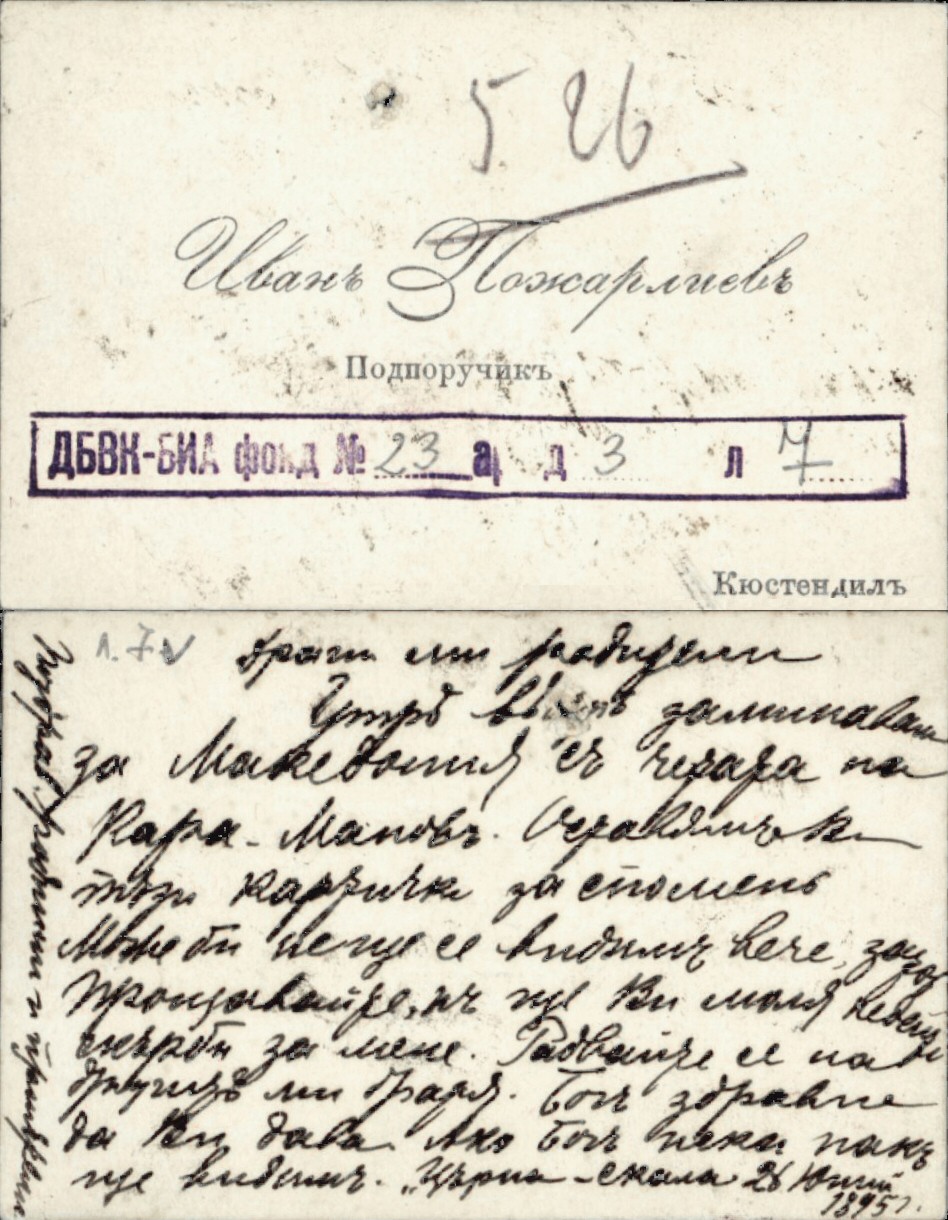 5. 26
Иванъ Пожарлиевъ
Подпоручикъ
ДБВК-БИА фонд № 23 а, д 3 л 7
Кюстендилъ
л. 7 v
Драги ми родители
Утрѣ заминавам
за Македония съ четата на
Кара-Мановъ. Оставямъ Ви
тѣзи картички за споменъ
Може би не ще се видимъ вече, затова
прощавайте, нъ ще Ви моля недейте
скърби за мене. Радвайте се на
другитѣ ми братя. Богъ здравие
да Ви дава. Ако Богъ иска пакъ
ще видимъ. "Църна-скала 26 Юний
1895 г.
Поздрав. роднини и приятели